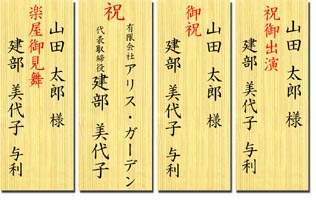 祝御出演
山田 太郎 様
建部 美代子 与利
御祝
山田 太郎 様
建部 美代子 与利
祝
有限会社 アリス・ガーデン
代表取締役 建部 美代子
楽屋御見舞
山田 太郎 様
建部 美代子 与利